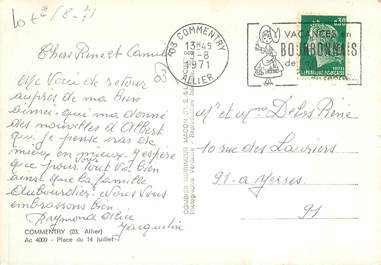 Chers René et Camille
Me Voici de retour
auprès de ma bien
aimée. qui m'a donné
des nouvelles d'Albert
que je pense vas de
mieux en mieux. J'espère
que pour vous tout va bien
ainsi que la famille
Autourdier. Nous Vous
embrassons bien
Raymond Alice
Jacqueline
COMMENTRY (03. Allier)
Ac 4000 - Place du 14 Juillet
COMBIER IMPRIMEUR MACON
Photographie Véritable
03 COMMENTRY
13H45
9-8
1971
ALLIER
VACANCES en
BOURBONNAIS
0.30
REPUBLIQUE FRANCAISE
Mr et Mme Debs René
10 rue des Lauriers
91-a Yerres
91